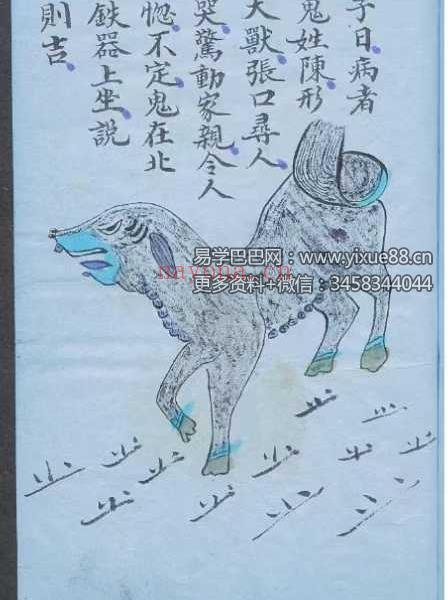 子日病者
鬼姓陳形
犬獸張口尋人
哭驚動家親令人
惚不定鬼在北
鉄器上坐説
則吉
易学巴巴网：www.yixue88.cn
nayona.cn
更多资料+微信：3458344044